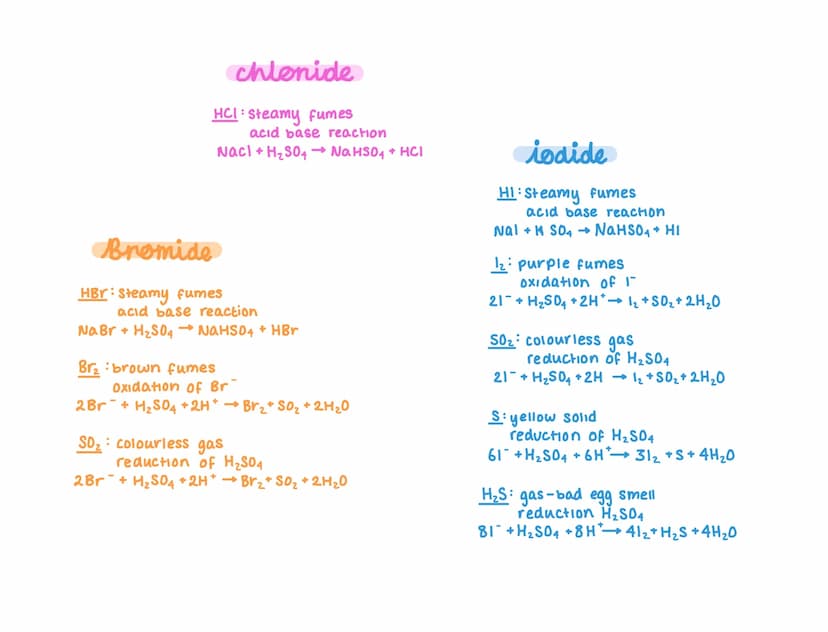 chloride
HCl: steamy fumes
acid base reaction
NaCl + H₂SO₄ → NaHSO₄ + HCl
iodide
HI: steamy fumes
acid base reaction
NaI + H SO₄ → NaHSO₄ + HI
I₂: purple fumes
oxidation of I⁻
2I⁻ + H₂SO₄ + 2H⁺ → I₂ + SO₂ + 2H₂O
SO₂: colourless gas
reduction of H₂SO₄
2I⁻ + H₂SO₄ + 2H → I₂ + SO₂ + 2H₂O
S: yellow solid
reduction of H₂SO₄
6I⁻ + H₂SO₄ + 6H⁺ → 3I₂ + S + 4H₂O
H₂S: gas - bad egg smell
reduction H₂SO₄
8I⁻ + H₂SO₄ + 8H⁺ → 4I₂ + H₂S + 4H₂O
Bromide
HBr: steamy fumes
acid base reaction
NaBr + H₂SO₄ → NaHSO₄ + HBr
Br₂: brown fumes
oxidation of Br⁻
2Br⁻ + H₂SO₄ + 2H⁺ → Br₂ + SO₂ + 2H₂O
SO₂: colourless gas
reduction of H₂SO₄
2Br⁻ + H₂SO₄ + 2H⁺ → Br₂ + SO₂ + 2H₂O